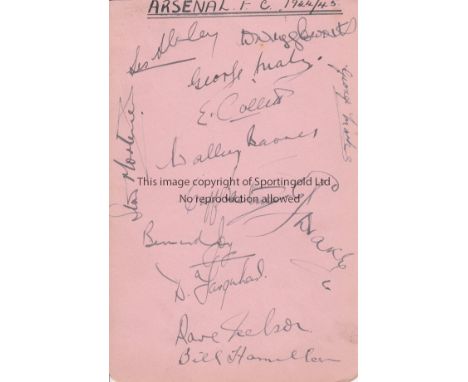 ARSENAL. F.C. 1944/45.
Les Henley
George Male.
George Marks
E. Collett
Stan Mortensen
Walley Barnes
This image copyright of Sportingold Ltd
No reproduction allowed
Cliff
Drake
Bernard Joy
D. Farquhar.
Dave Nelson
Bill Hamilton